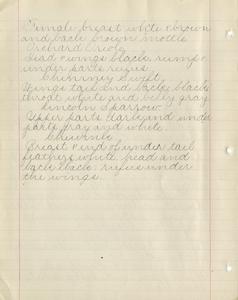 Female, breast white & brown
and back brown mottle
Orchard Oriole
Head & wings black, rump &
under parts rufus.
Chimney Swift
Wings tail and back black
throat white and belly gray
Lincoln's sparrow.
Upper parts dark and under
parts gray and white.
Chewink
Breast & end of under tail
feathers white, head and
back black. rufus under
the wings.